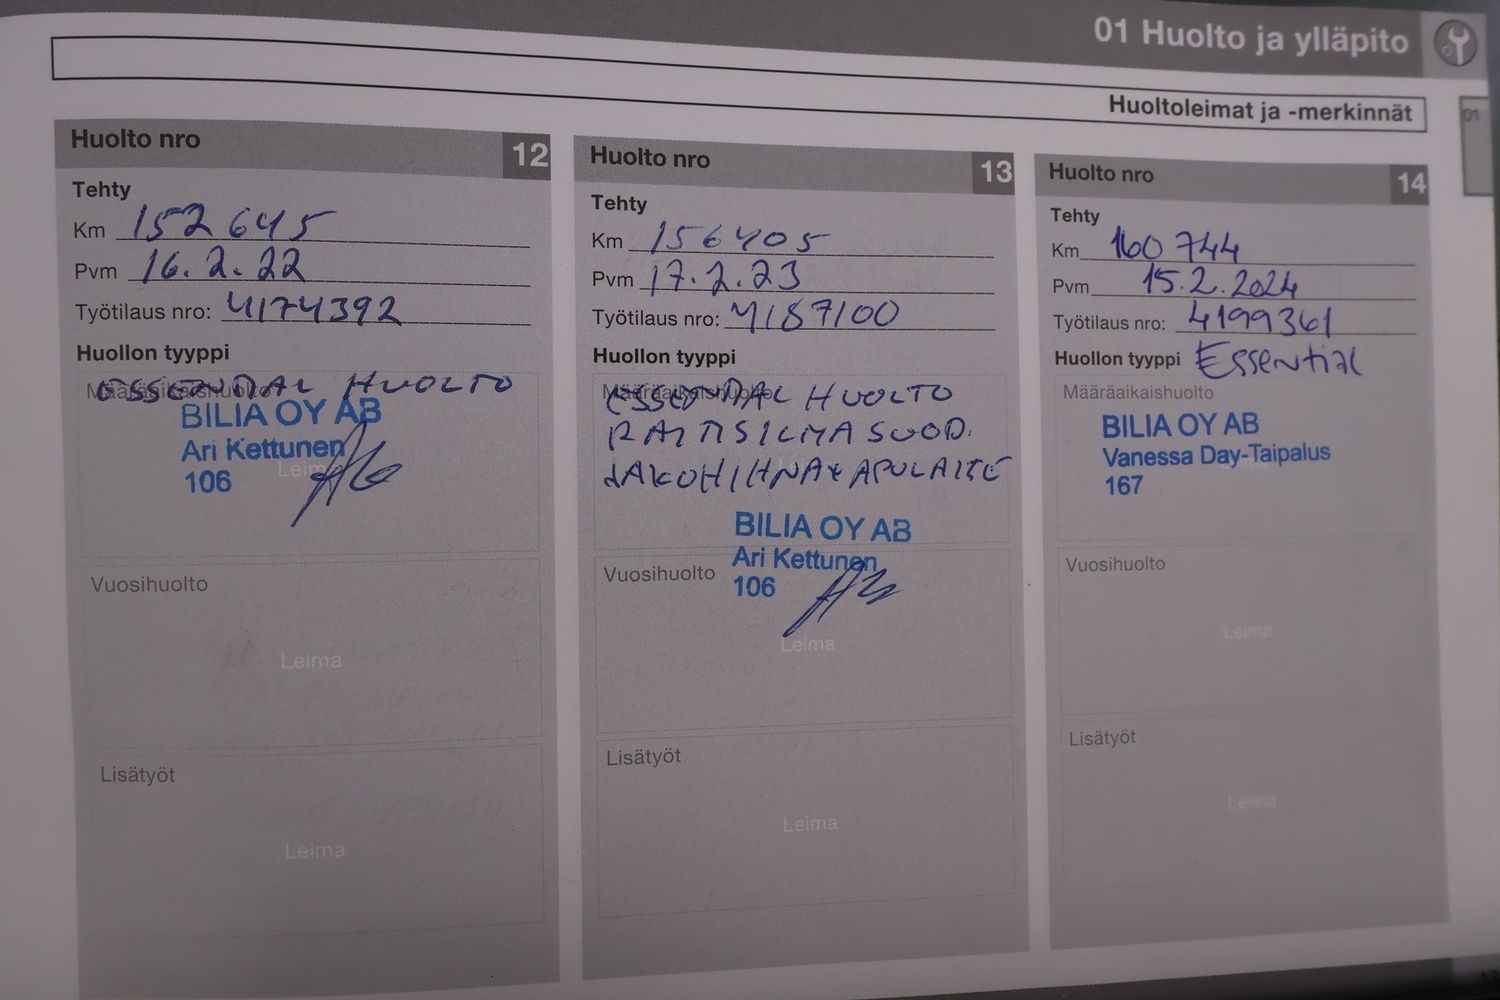 01 Huolto ja ylläpito
Huoltoleimat ja -merkinnät
01
Huolto nro 12
Tehty
Km 152 645
Pvm 16.2.22
Työtilaus nro: 4174392
Huollon tyyppi
Määräaikaishuolto
ESSENTIAL HUOLTO
BILIA OY AB
Ari Kettunen
Leima
106
Vuosihuolto
Leima
Lisätyöt
Leima
Huolto nro 13
Tehty
Km 156405
Pvm 17.2.23
Työtilaus nro: 4187100
Huollon tyyppi
Määräaikaishuolto
ESSENTIAL HUOLTO
RAITISILMASUOD.
JAKOHIHNA+APULAITE
BILIA OY AB
Ari Kettunen
106
Vuosihuolto
Leima
Lisätyöt
Leima
Huolto nro 14
Tehty
Km 160 744
Pvm 15.2.2024
Työtilaus nro: 4199361
Huollon tyyppi Essential
Määräaikaishuolto
BILIA OY AB
Vanessa Day-Taipalus
167
Vuosihuolto
Leima
Lisätyöt
Leima